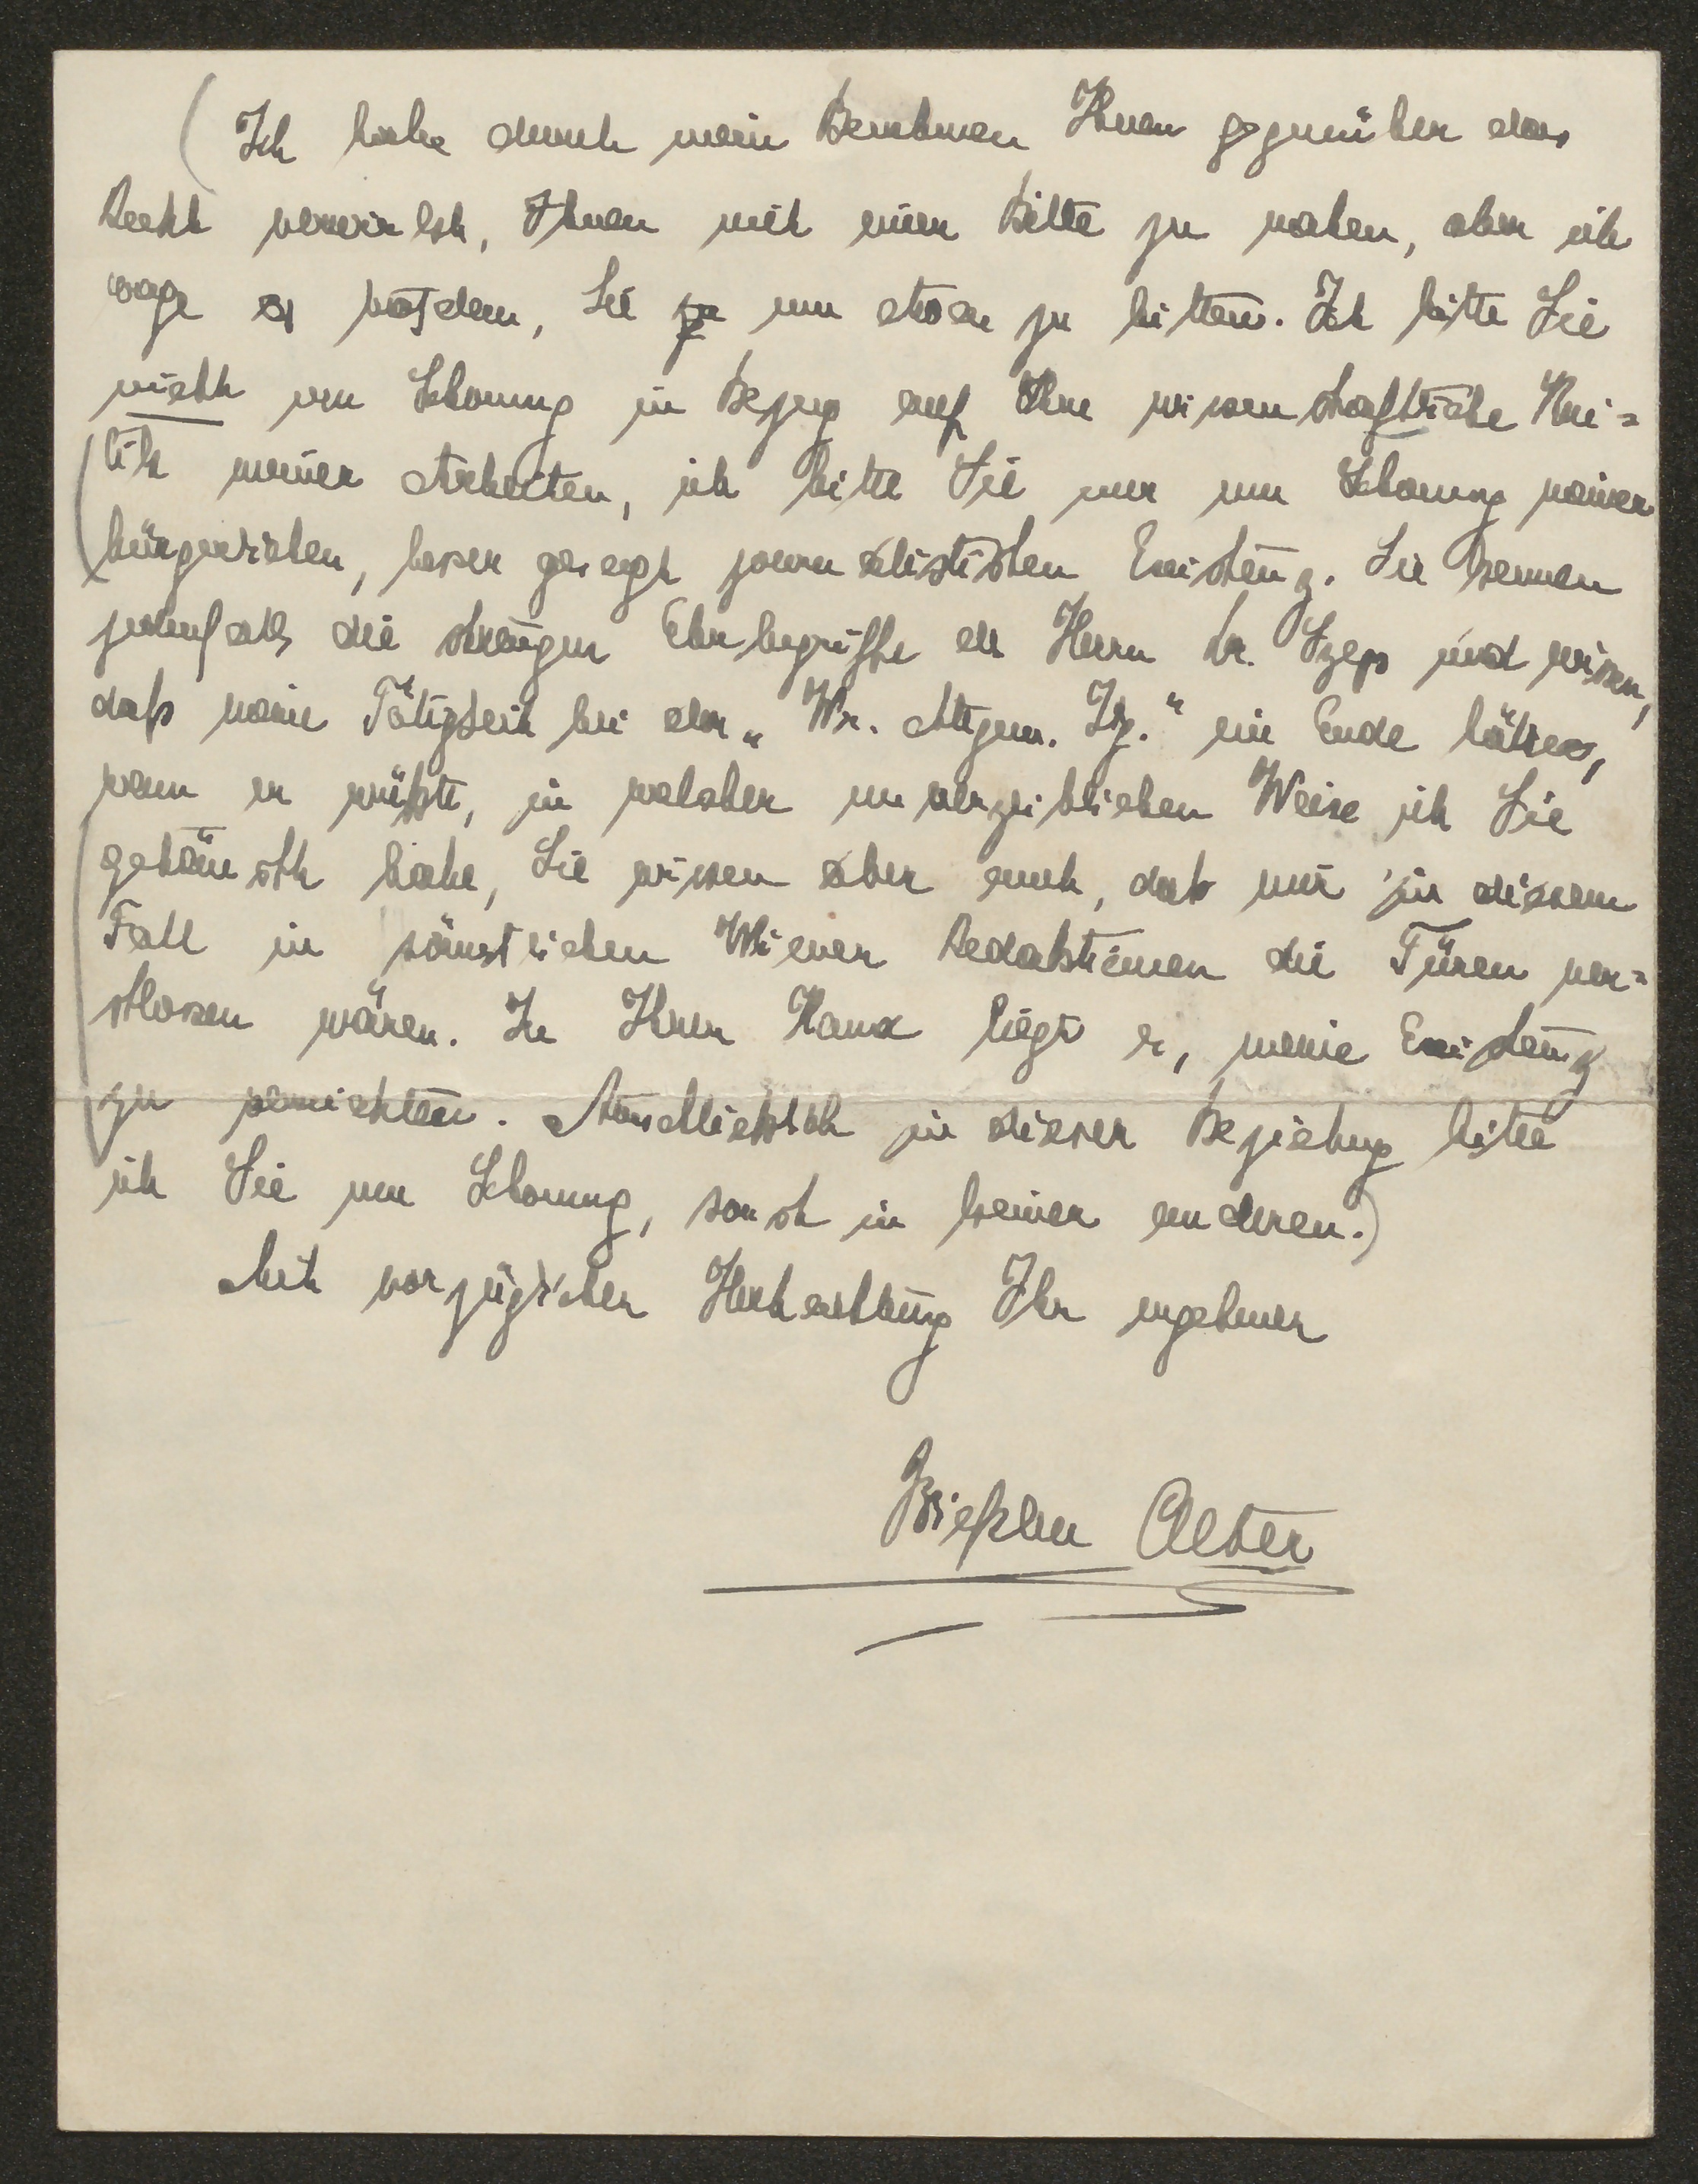 (Ich habe durch mein Benehmen Ihnen gegenüber das
Recht verwirkt, Ihnen mit einer Bitte zu nahen, aber ich
wage es trotzdem, Sie um etwas zu bitten. Ich bitte Sie
nicht um Schonung in Bezug auf Ihre wissenschaftliche Kri=
tik meiner Arbeiten, ich bitte Sie nur um Schonung meiner
bürgerlichen, besser gesagt journalistischen Existenz. Sie kennen
jedenfalls die strengen Ehrbegriffe des Herrn Dr. Szeps und wissen,
daß meine Tätigkeit bei der „Wr. Allgem. Ztg." ein Ende hätte,
wenn er wüßte, in welcher unverzeihlichen Weise ich Sie
getäuscht habe, Sie wissen aber auch, daß mir in diesem
Fall in sämtlichen Wiener Redaktionen die Türen ver=
schlossen wären. In Ihrer Hand liegt es, meine Existenz
zu vernichten. Ausschließlich in dieser Beziehung bitte
ich Sie um Schonung, sonst in keiner anderen.)
Mit vorzüglicher Hochachtung Ihr ergebener
Alter